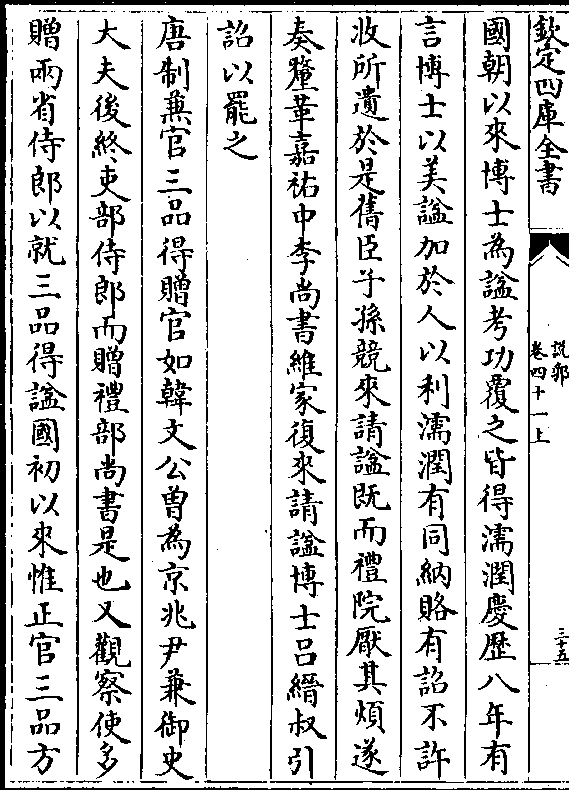 欽定四庫全書
說郛
卷四十一上
三十五
國朝以來博士為諡考功覆之皆得濡潤慶歷八年有
言博士以美諡加於人以利濡潤有同納賂有詔不許
收所遺於是舊臣子孫競來請諡既而禮院厭其煩遂
奏釐革嘉祐中李尚書維家復來請諡博士呂縉叔引
詔以罷之
唐制兼官三品得贈官如韓文公曾為京兆尹兼御史
大夫後終吏部侍郎而贈禮部尚書是也又觀察使多
贈兩省侍郎以就三品得諡國初以來惟正官三品方